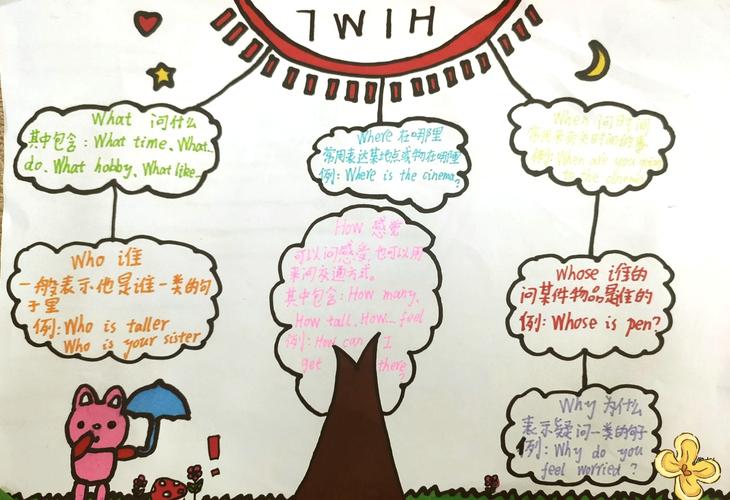 HIWL
What 问什么
其中包含：What time、What
do、What hobby、What like...
Where 在哪里
常用表达某地点或物在哪里
例：Where is the cinema?
When 问时间
例：When are you going
to the cinema
Who 谁
一般表示他是谁一类的句
子里
例：Who is taller
Who is your sister
How 感觉
可以问感受,也可以用
来问交通方式。
其中包含：How many、
How tall、How... feel
例：How can I
get there?
Whose 谁的
问某件物品是谁的
例：Whose is pen?
Why 为什么
表示疑问一类的句子
例：Why do you
feel worried?